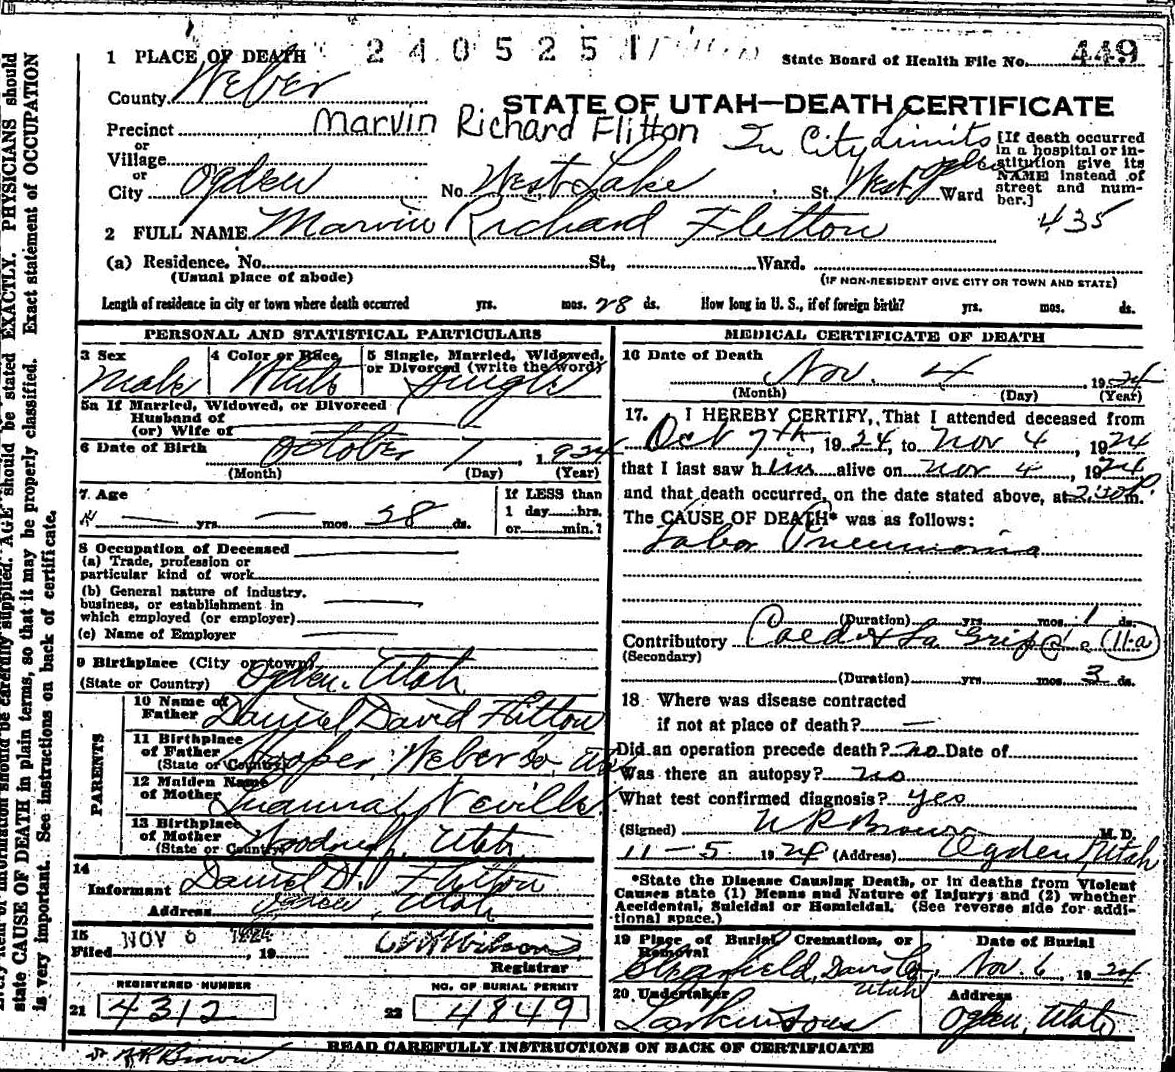 1 PLACE OF DEATH 2405251 State Board of Health File No. 449
County Weber
STATE OF UTAH—DEATH CERTIFICATE
Precinct Marvin Richard Flitton In City Limits
or
Village
or
City Ogden No. West Lake St. West Ogden Ward
[If death occurred in a hospital or in-
stitution give its
NAME instead of
street and num-
ber.]
435
2 FULL NAME Marvin Richard Flitton
(a) Residence. No. St., Ward.
(Usual place of abode) (IF NON-RESIDENT GIVE CITY OR TOWN AND STATE)
Length of residence in city or town where death occurred yrs. mos. 28 ds. How long in U. S., if of foreign birth? yrs. mos. ds.
PERSONAL AND STATISTICAL PARTICULARS
3 Sex 4 Color or Race 5 Single, Married, Widowed,
or Divorced (write the word)
Male White Single
5a If Married, Widowed, or Divorced
Husband of
(or) Wife of
6 Date of Birth October 7, 1924
(Month) (Day) (Year)
7. Age — yrs. — mos. 28 ds.
If LESS than
1 day hrs.
or min.?
8 Occupation of Deceased
(a) Trade, profession or
particular kind of work
(b) General nature of industry.
business, or establishment in
which employed (or employer)
(c) Name of Employer
9 Birthplace (City or town)
(State or Country) Ogden, Utah
PARENTS
10 Name of
Father Daniel David Flitton
11 Birthplace
of Father
(State or Country) Hooper, Weber Co,
12 Maiden Name
of Mother Neville
13 Birthplace
of Mother
(State or Country) Woodruff, Utah
14
Informant Daniel D. Flitton
Address Ogden, Utah
15
Filed NOV 6 1924, 19 Wilson
Registrar
REGISTERED NUMBER NO. OF BURIAL PERMIT
21 4312 22 4849
MEDICAL CERTIFICATE OF DEATH
16 Date of Death
Nov. 4, 1924
(Month) (Day) (Year)
17. I HEREBY CERTIFY, That I attended deceased from
Oct 7th, 1924, to Nov 4, 1924
that I last saw him alive on Nov 4, 1924
and that death occurred, on the date stated above, at 2:30 P m.
The CAUSE OF DEATH* was as follows:
Lobor Pneumonia
(Duration) yrs. mos. 1 ds.
Contributory Cold & La Grippe (11-a)
(Secondary)
(Duration) yrs. mos. 3 ds.
18 Where was disease contracted
if not at place of death? —
Did an operation precede death? no Date of
Was there an autopsy? no
What test confirmed diagnosis? yes
(Signed) Brown M. D.
11-5 1924 (Address) Ogden, Utah
*State the Disease Causing Death, or in deaths from Violent
Causes state (1) Means and Nature of Injury; and (2) whether
Accidental, Suicidal or Homicidal. (See reverse side for addi-
tional space.)
19 Place of Burial, Cremation, or
Removal
Clearfield, Davis Co, Utah
Date of Burial
Nov. 6 1924
20 Undertaker
Larkin & Sons
Address
Ogden, Utah
READ CAREFULLY INSTRUCTIONS ON BACK OF CERTIFICATE
Brown
information should be carefully supplied. AGE should be stated EXACTLY. PHYSICIANS should
state CAUSE OF DEATH in plain terms, so that it may be properly classified. Exact statement of OCCUPATION
is very important. See instructions on back of certificate.